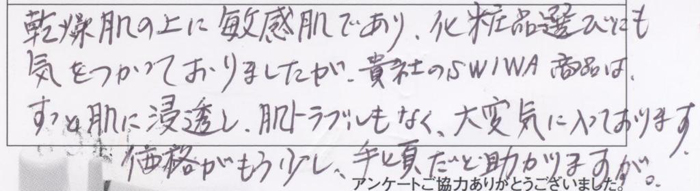 乾燥肌の上に敏感肌であり、化粧品選びにも
気をつかっておりましたが、貴社のSWIWA商品は、
すっと肌に浸透し、肌トラブルもなく、大変気に入っております。
価格がもう少し、手頃だと助かりますが。
アンケートご協力ありがとうございました。